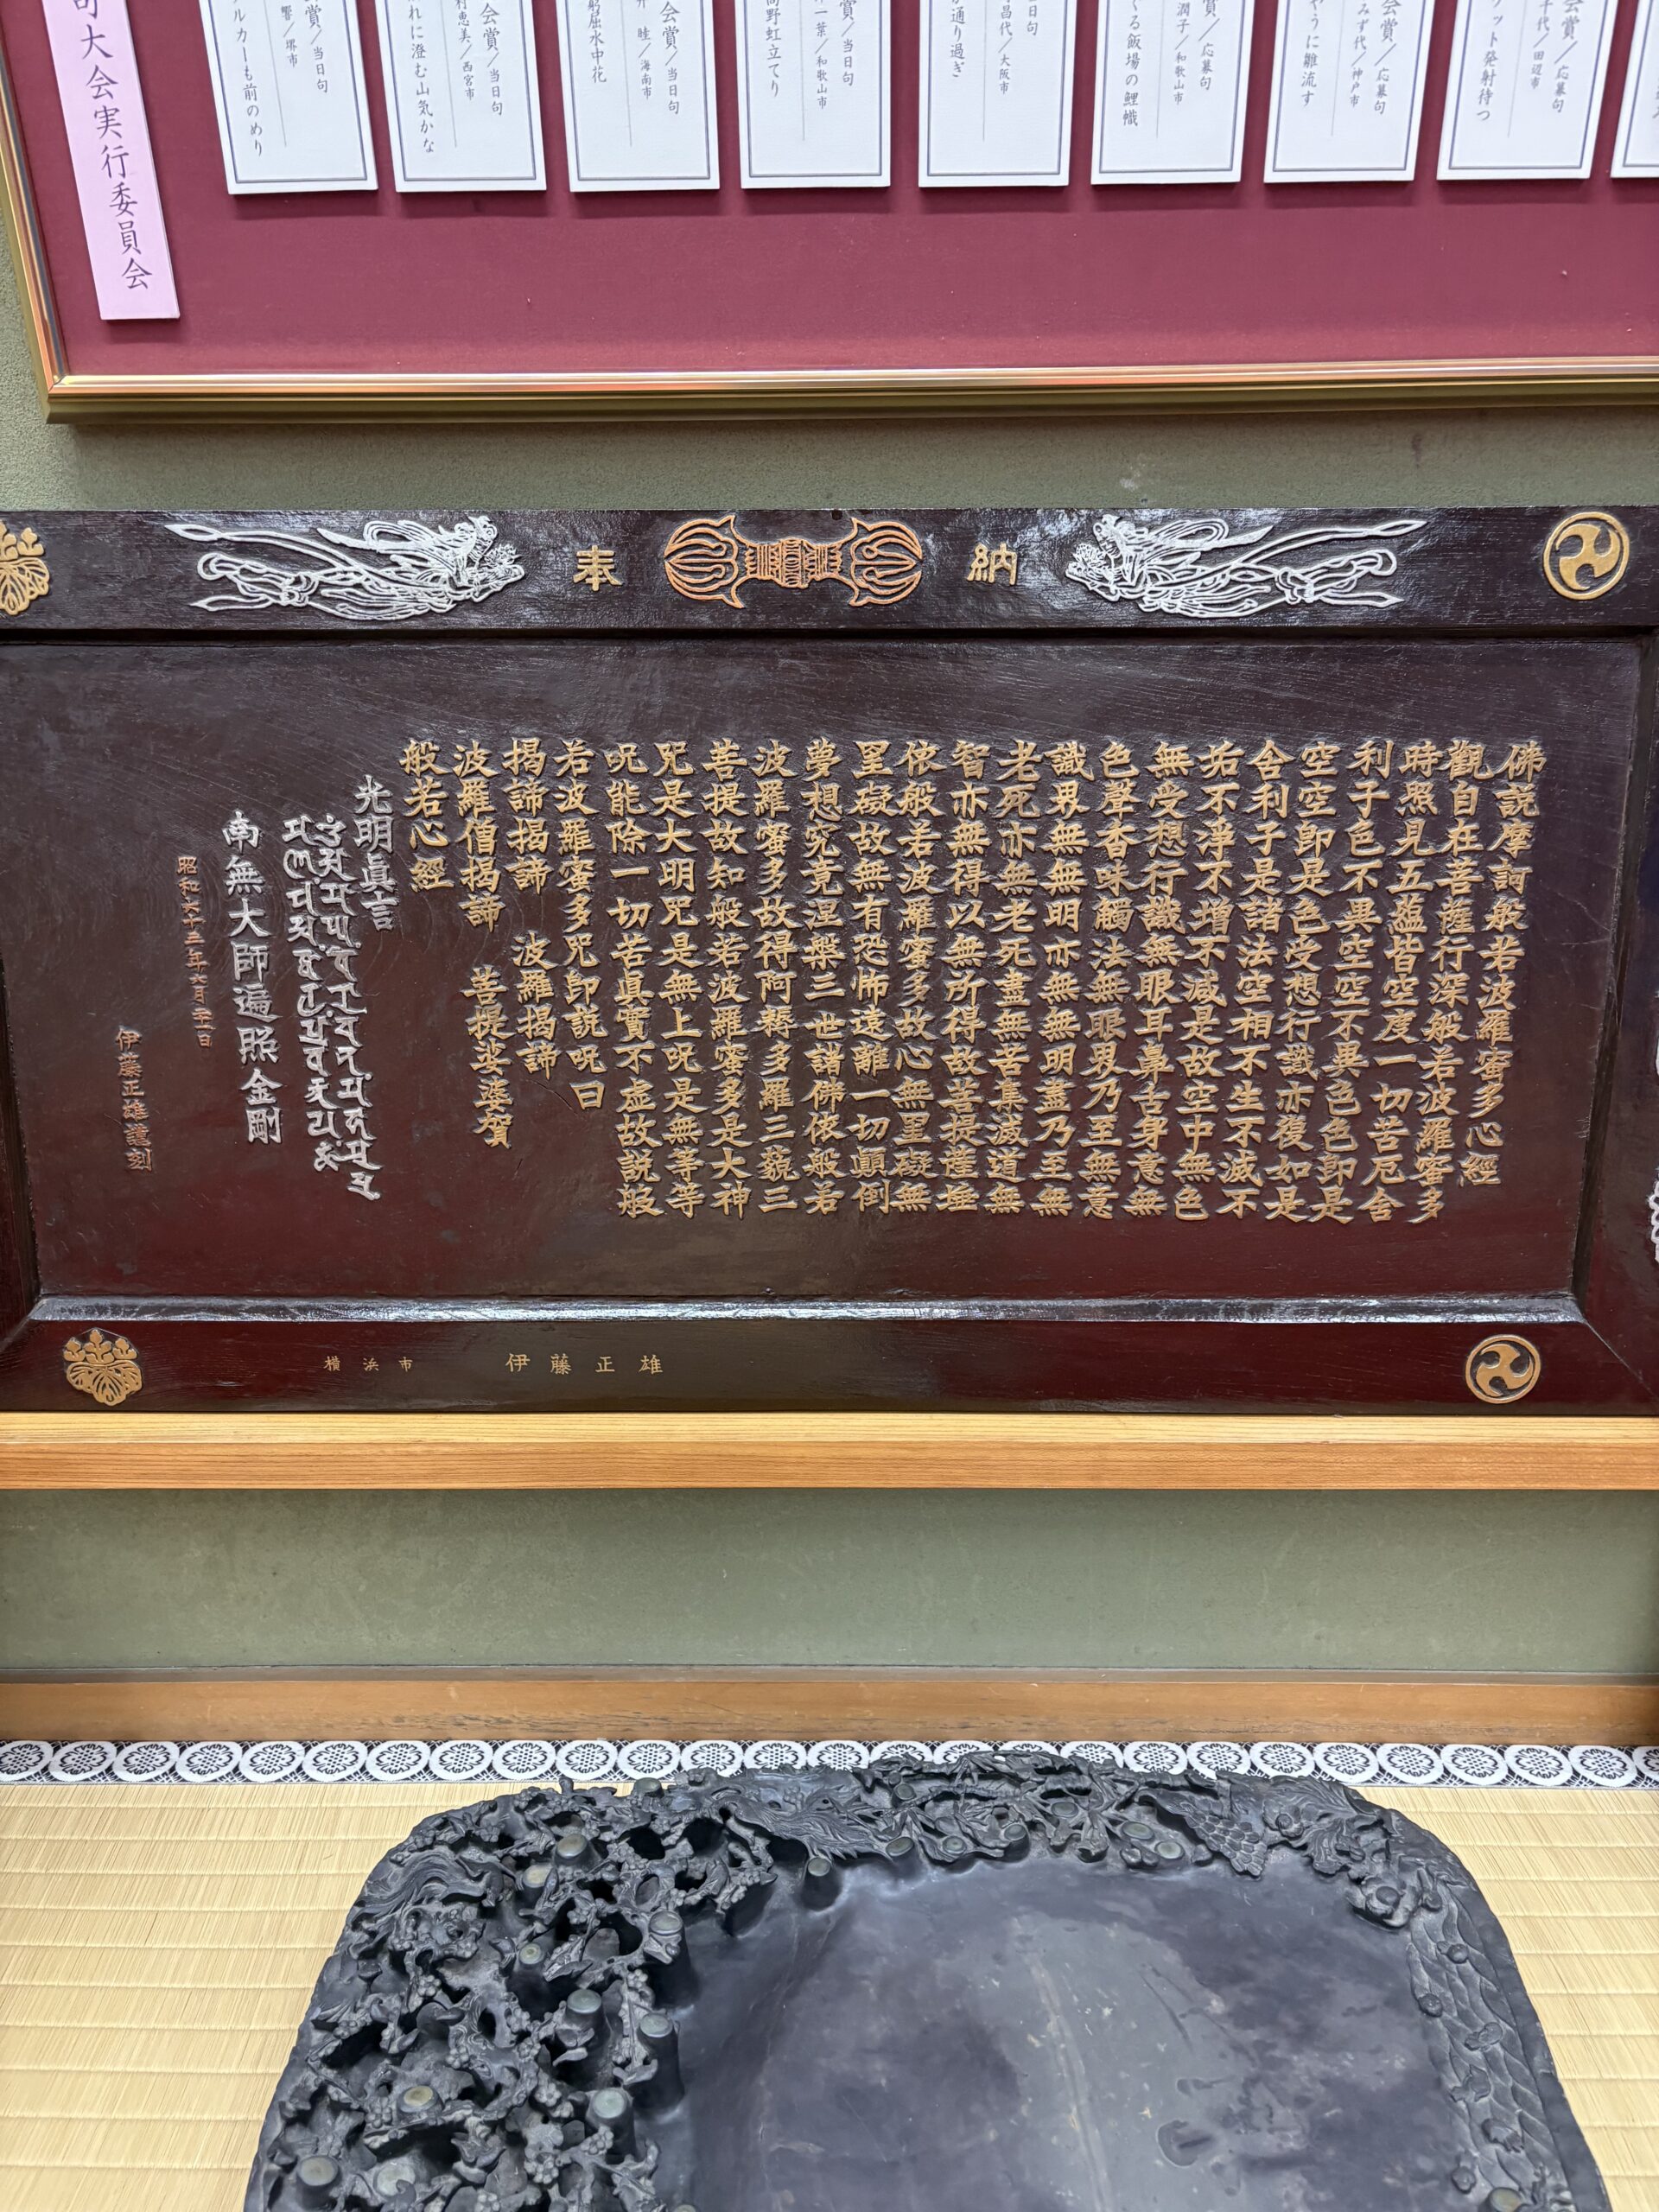 会賞／応募句
千代／田辺市
ット発射待つ
会賞／応募句
みず代／神戸市
やうに雛流す
賞／応募句
潤子／和歌山市
くる飯場の鯉幟
日句
昌代／大阪市
が通り過ぎ
賞／当日句
一葉／和歌山市
高野虹立てり
会賞／当日句
睦／海南市
躬屈水中花
会賞／当日句
村恵美／西宮市
れに澄む山気かな
賞／当日句
響／堺市
ルカーも前のめり
句大会実行委員会
奉 納
佛説摩訶般若波羅蜜多心經
觀自在菩薩行深般若波羅蜜多
時照見五蘊皆空度一切苦厄舍
利子色不異空空不異色色即是
空空即是色受想行識亦復如是
舍利子是諸法空相不生不滅不
垢不淨不增不減是故空中無色
無受想行識無眼耳鼻舌身意無
色聲香味觸法無眼界乃至無意
識界無無明亦無無明盡乃至無
老死亦無老死盡無苦集滅道無
智亦無得以無所得故菩提薩埵
依般若波羅蜜多故心無罣礙無
罣礙故無有恐怖遠離一切顚倒
夢想究竟涅槃三世諸佛依般若
波羅蜜多故得阿耨多羅三藐三
菩提故知般若波羅蜜多是大神
咒是大明咒是無上呪是無等等
呪能除一切苦眞實不虛故説般
若波羅蜜多咒即説呪曰
揭諦揭諦 波羅揭諦
波羅僧揭諦 菩提娑婆賀
般若心經
光明眞言
南無大師遍照金剛
昭和六十三年六月
伊藤正雄謹刻
横浜市 伊藤正雄